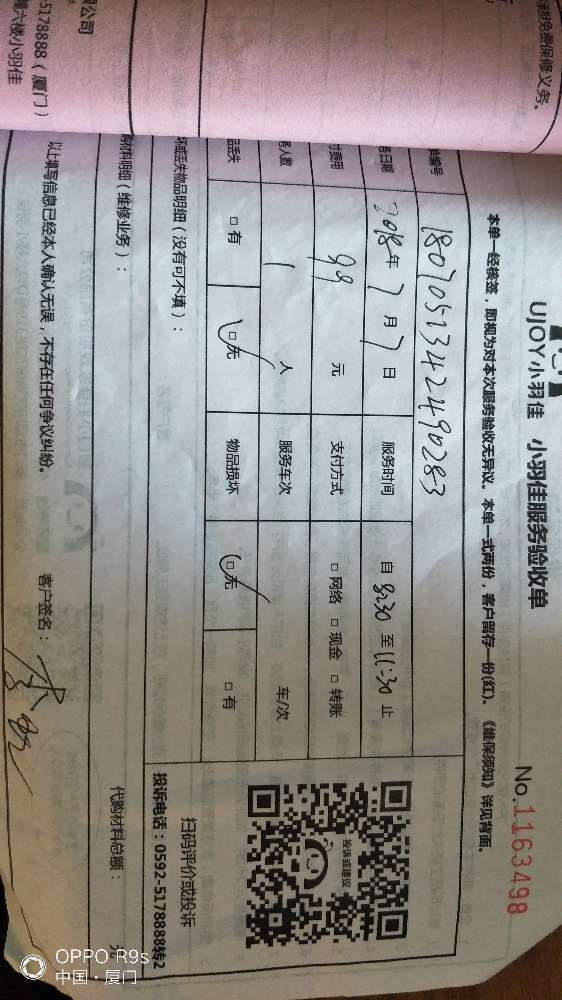 限公司
5178888（厦门）
六楼小羽佳
承担免费保修义务。
UJOY小羽佳 小羽佳服务验收单
No.1163498
本单一经核签，即视为对本次服务验收无异议。本单一式两份，客户留存一份(红)。《维保须知》详见背面。
单编号 1807051342490283
务日期 2018年7月7日 服务时间 自 8:30 至 11:30 止
付费用 99 元 支付方式 □ 网络 □ 现金 □ 转账
务人数 1 人 服务车次 车/次
品丢失 □ 有 □ 无 物品损坏 □ 无 □ 有
坏或丢失物品明细（没有可不填）：
投诉或建议
扫码评价或投诉
投诉电话：0592-5178888转2
购材料明细（维修业务）：
代购材料总额： 元
以上填写信息已经本人确认无误，不存在任何争议纠纷。 客户签名：
OPPO R9s
中国·厦门